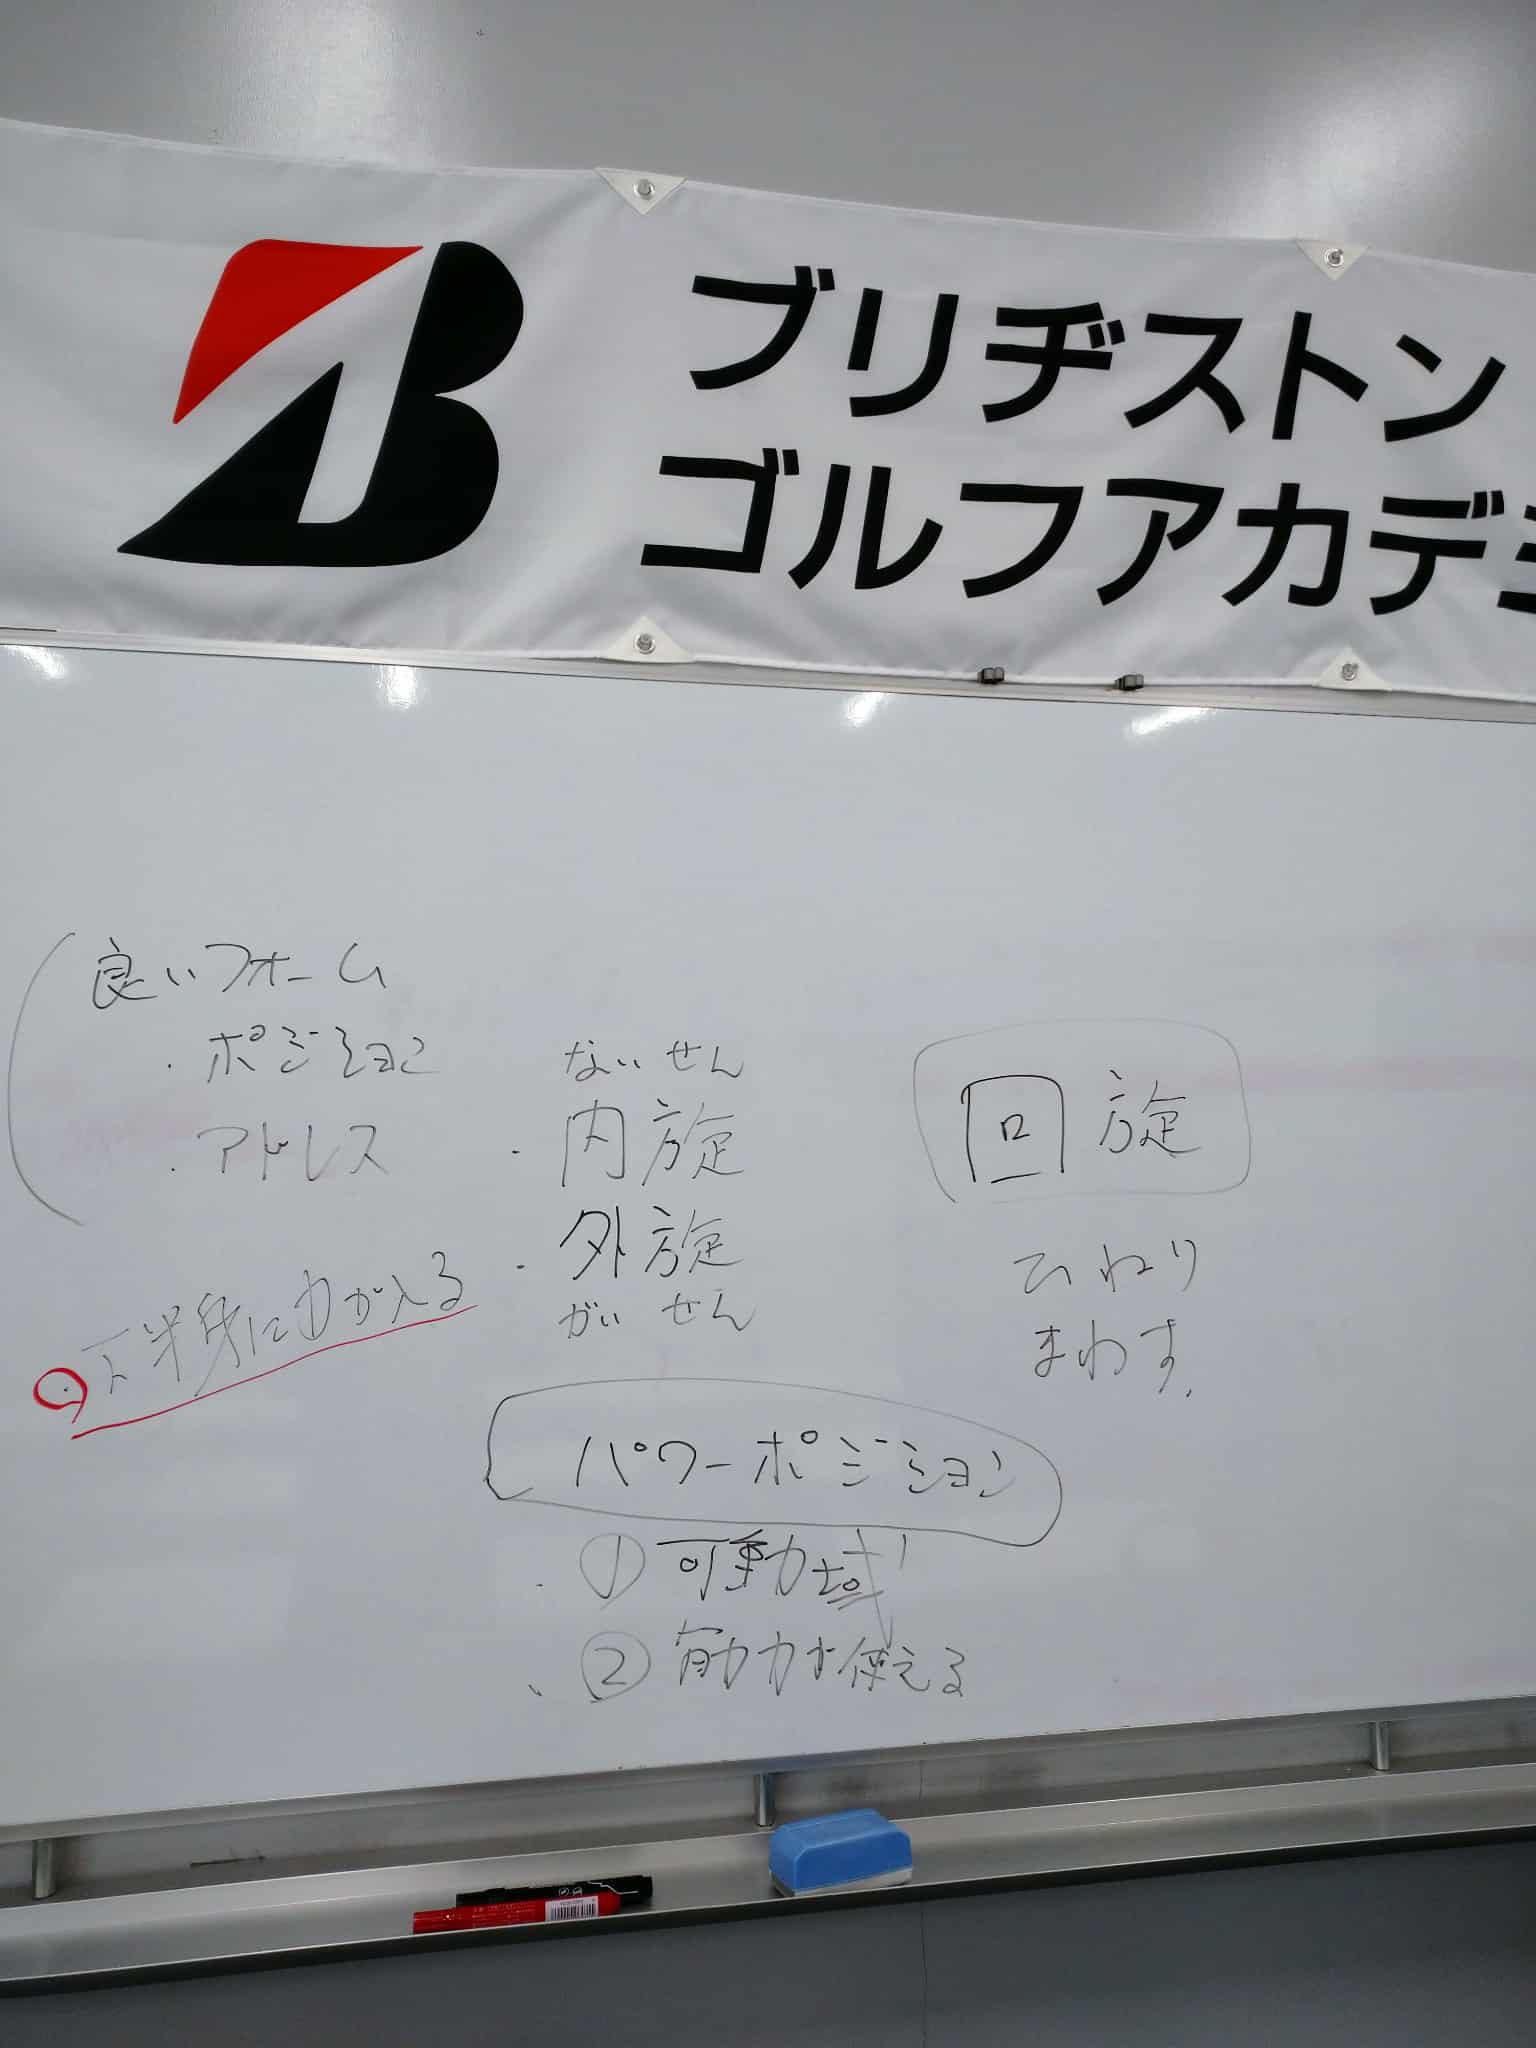 ブリヂストン
ゴルフアカデミ
良いフォーム
・ポジション
・アドレス
・下半身に力が入る
ないせん
・内旋
・外旋
がいせん
回旋
ひねり
まわす.
パワーポジション
・①可動域
、②筋力が使える